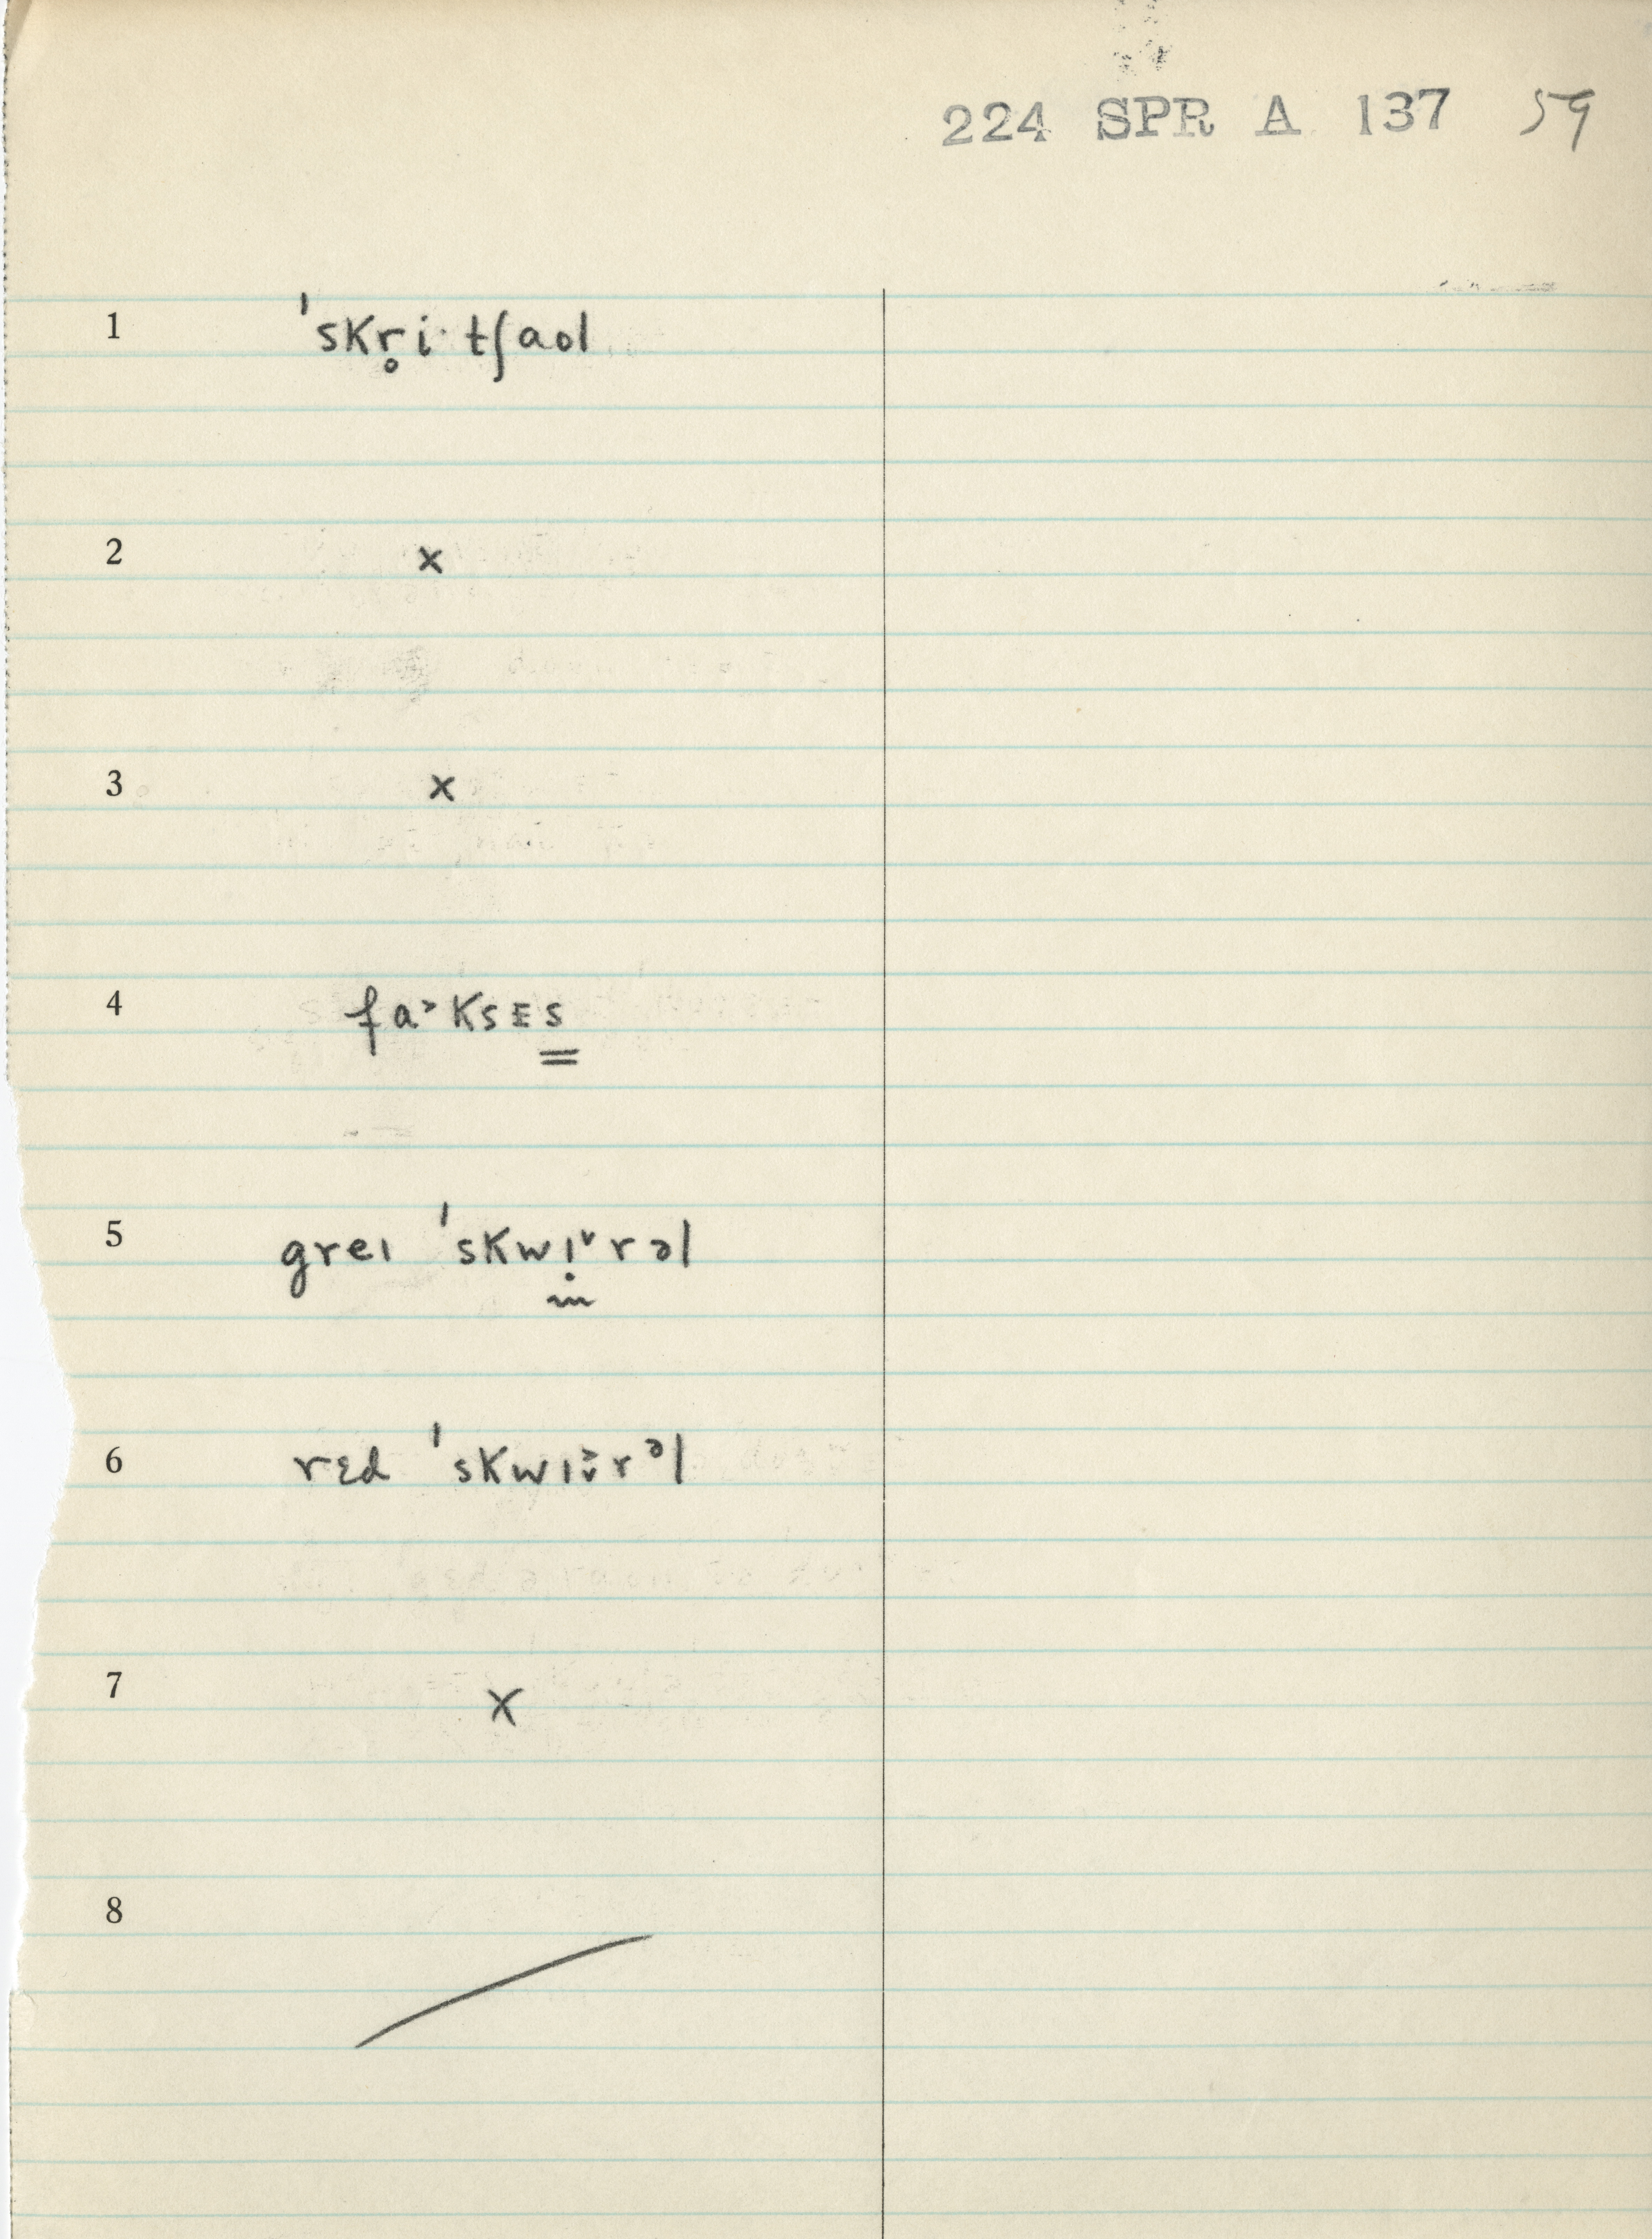 224 SPR A 137 59
1 ˈskr̥i· tʃaʊl
2 x
3 x
4 fa˃ksɛs
5 greɪ ˈskwɪ̣˅rəl
6 rɛd ˈskwɪ˅̆rᵊl
7 X
8